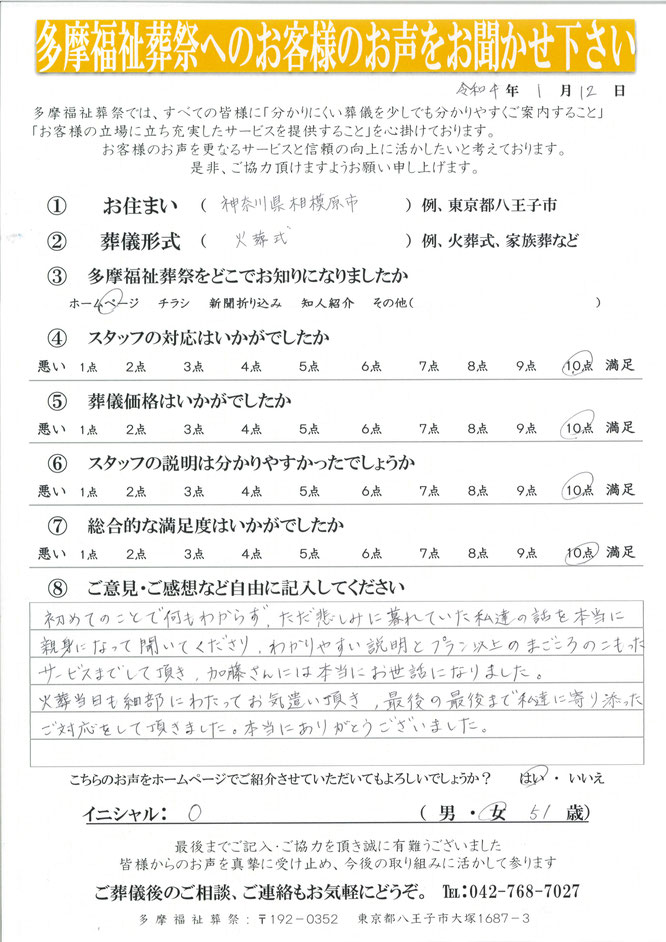 多摩福祉葬祭へのお客様のお声をお聞かせ下さい
令和4年 1月 12日
多摩福祉葬祭では、すべての皆様に「分かりにくい葬儀を少しでも分かりやすくご案内すること」
「お客様の立場に立ち充実したサービスを提供すること」を心掛けております。
お客様のお声を更なるサービスと信頼の向上に活かしたいと考えております。
是非、ご協力頂けますようお願い申し上げます。
① お住まい ( 神奈川県相模原市 ) 例、東京都八王子市
② 葬儀形式 ( 火葬式 ) 例、火葬式、家族葬など
③ 多摩福祉葬祭をどこでお知りになりましたか
ホームページ チラシ 新聞折り込み 知人紹介 その他( )
④ スタッフの対応はいかがでしたか
悪い 1点 2点 3点 4点 5点 6点 7点 8点 9点 10点 満足
⑤ 葬儀価格はいかがでしたか
悪い 1点 2点 3点 4点 5点 6点 7点 8点 9点 10点 満足
⑥ スタッフの説明は分かりやすかったでしょうか
悪い 1点 2点 3点 4点 5点 6点 7点 8点 9点 10点 満足
⑦ 総合的な満足度はいかがでしたか
悪い 1点 2点 3点 4点 5点 6点 7点 8点 9点 10点 満足
⑧ ご意見・ご感想など自由に記入してください
初めてのことで何もわからず、ただ悲しみに暮れていた私達の話を本当に
親身になって聞いてくださり、わかりやすい説明とプラン以上のまごころのこもった
サービスまでして頂き、加藤さんには本当にお世話になりました。
火葬当日も細部にわたってお気遣い頂き、最後の最後まで私達に寄り添った
ご対応をして頂きました。本当にありがとうございました。
こちらのお声をホームページでご紹介させていただいてもよろしいでしょうか？ はい・いいえ
イニシャル： O ( 男・女 51 歳)
最後までご記入・ご協力を頂き誠に有難うございました
皆様からのお声を真摯に受け止め、今後の取り組みに活かして参ります
ご葬儀後のご相談、ご連絡もお気軽にどうぞ。 TEL:042-768-7027
多摩福祉葬祭：〒192-0352 東京都八王子市大塚1687-3